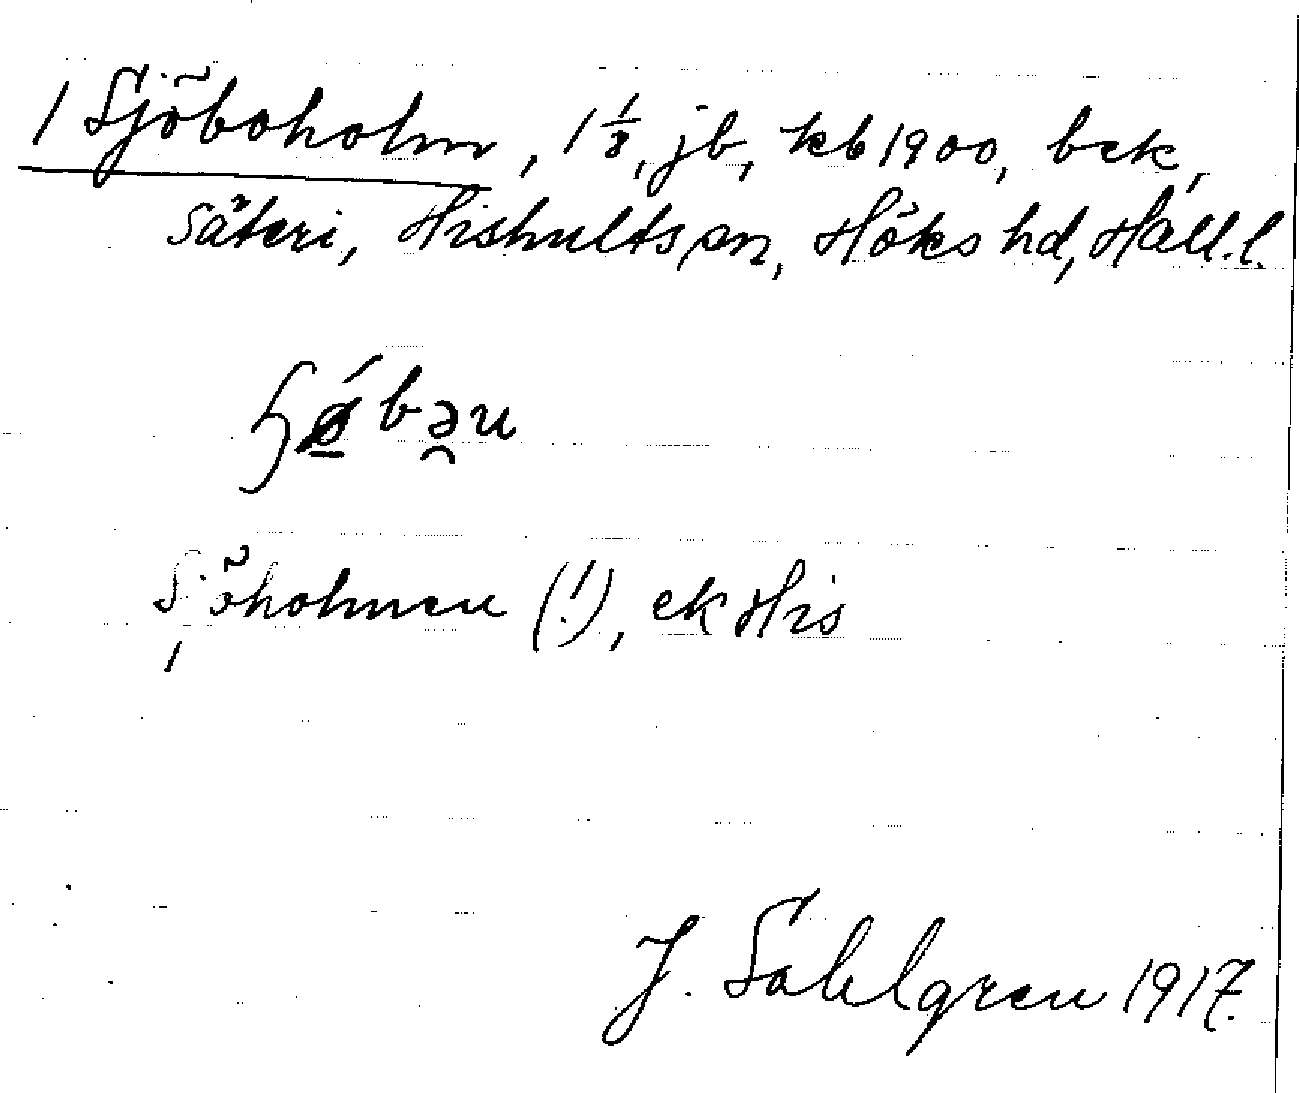 1 Sjöboholm, 1 1/8, jb, kb 1900, bek,
säteri, Hishults sn, Höks hd, Hall. l.
ɧǿ̱bə̯n
Sjöholmen (!), ek His
J. Sahlgren 1917.